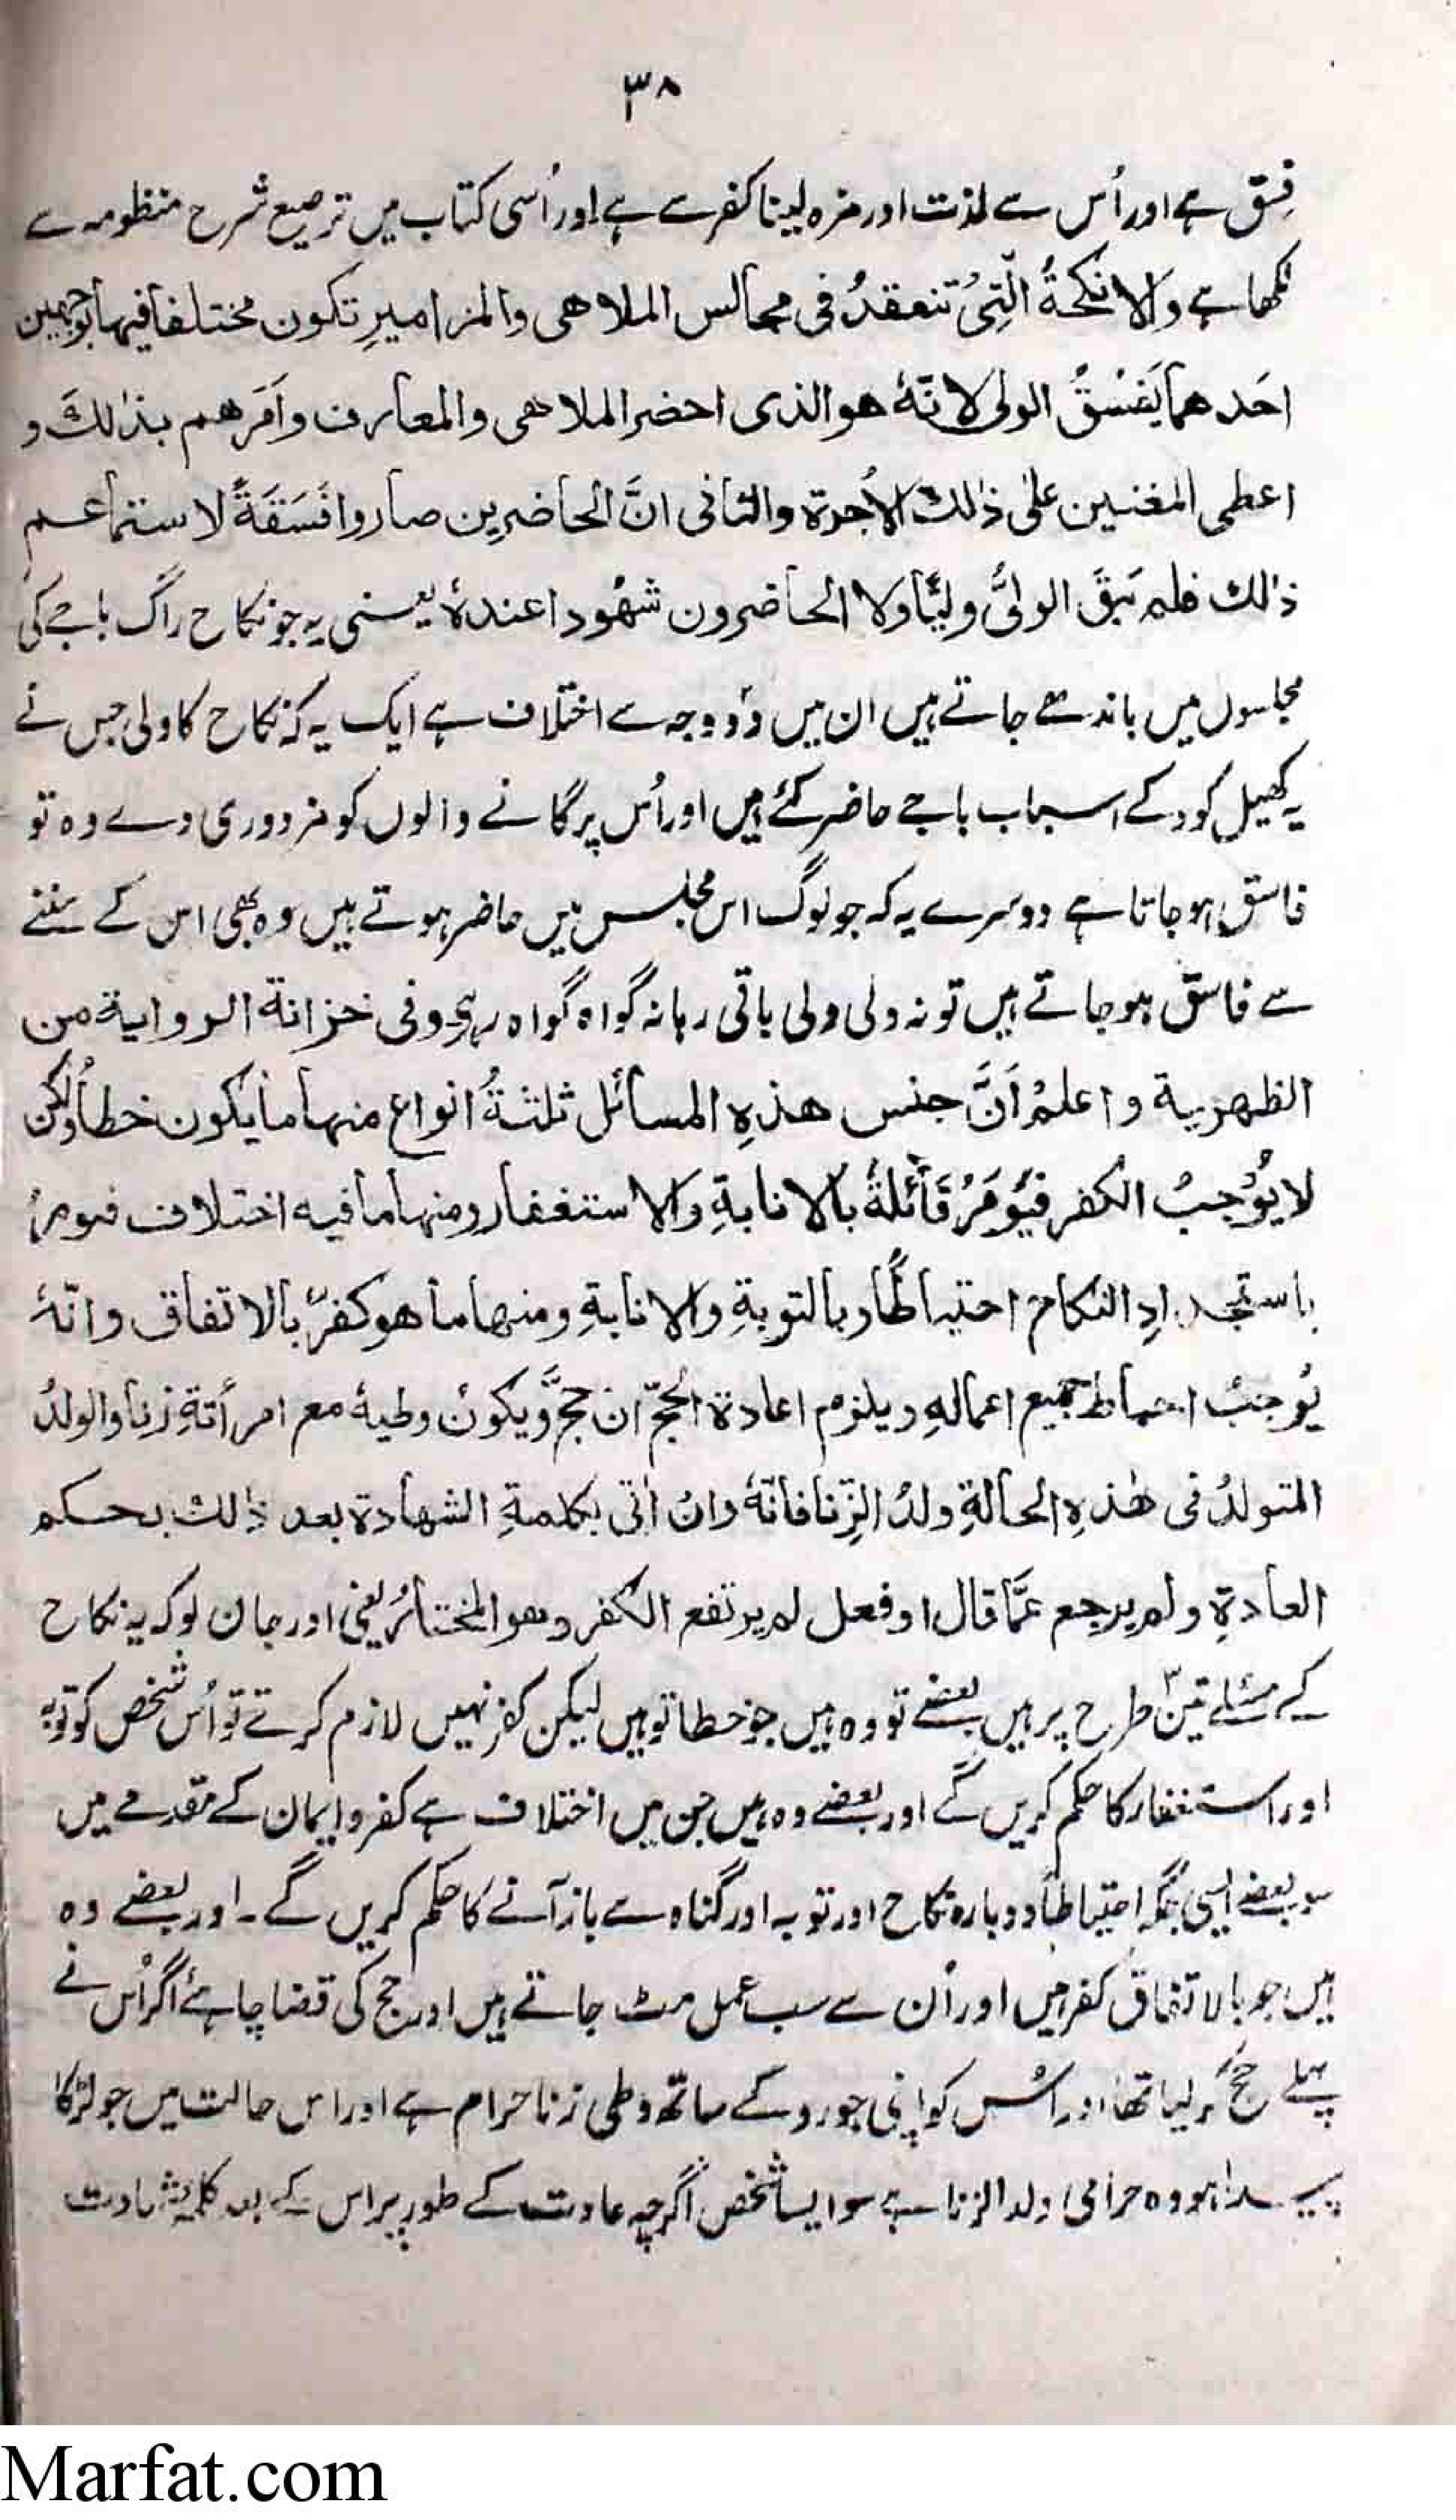 ۳۸
فِسق ہے اور اُس سے لذت اور مزہ لینا کفر سے ہے اور اُسی کتاب میں ترصیع شرح منظومہ سے
لکھا ہے والانکحةُ الّتِیْ تنعقدُ فی مجالس الملاھی والمزامیرِ تکون مختلفا فیھا بوجھین
احَدھما یَفسُقُ الولی لانّہٗ ھو الذی احضر الملاھی والمعازف وامَرھم بذٰلکَ و
اعطی المغنیین علیٰ ذٰلک الاُجرة والثانی انَّ الحاضرِین صاروا فَسَقَةً لاستماعھم
ذٰلک فلم یَبقَ الولیُّ ولیًّا ولا الحاضرون شھُودا عندہٗ یعنی یہ جو نکاح راگ باجے کی
مجلسوں میں باندھے جاتے ہیں ان میں دٚو وجہ سے اختلاف ہے ایک یہ کہ نکاح کا ولی جس نے
یہ کھیل کود کے اسباب باجے حاضر کئے ہیں اور اُس پر گانے والوں کو مزدوری دے وہ تو
فاسق ہو جاتا ہے دوسرے یہ کہ جو لوگ اس مجلس میں حاضر ہوتے ہیں وہ بھی اس کے سننے
سے فاسق ہو جاتے ہیں تو نہ ولی ولی باقی رہا نہ گواہ گواہ رہے وفی خزانة الروایة من
الظھریة واعلمْ اَنَّ جنس ھذہِ المسائل ثلثةُ انواع منھا ما یکون خطأً ولکن
لا یُوْجبُ الکفر فیُوْمَرُ قَائلہٗ بالانابةِ والاستغفار ومنھا ما فیہ اختلاف فیومرُ
باستجدادِ النکاح احتیاطًا وبالتوبةِ والانابةِ ومنھا ما ھو کفرٌ بالاتفاق وانّہٗ
یُوجبُ احباط جمیع اعمالہِ ویلزم اعادة الحجّ ان حجَّ ویکونُ وطیہٗ مع امرأتہِ زنا والولدُ
المتولدُ فی ھٰذہِ الحالةِ ولدُ الزّنا فانّہٗ وانْ اتٰی بکلمةِ الشھادة بعد ذٰلک بحکم
العادةِ ولم یرجع عمَّا قال او فعل لم یرتفع الکفر وھو المختارُ یعنی اور جان لو کہ یہ نکاح
کے مسئلے تین۳ طرح پر ہیں بعضے تو وہ ہیں جو خطا تو ہیں لیکن کفر نہیں لازم کرتے تو اُس شخص کو توبہ
اور استغفار کا حکم کریں گے اور بعضے وہ ہیں جن میں اختلاف ہے کفر و ایمان کے مقدمے میں
سو بعضے ایسی جگہ احتیاطًا دوبارہ نکاح اور توبہ اور گناہ سے باز آنے کا حکم کریں گے۔ اور بعضے وہ
ہیں جو بالاتفاق کفر ہیں اور اُن سے سب عمل مٹ جاتے ہیں اور حج کی قضا چاہئے اگر اُس نے
پہلے حج کر لیا تھا اور اُس کو اپنی جورو کے ساتھ وطی زنا حرام ہے اور اس حالت میں جو لڑکا
پیدا ہو وہ حرامی ولد الزنا ہے سو ایسا شخص اگرچہ عادت کے طور پر اس کے بعد کلمۂ شہادت
Marfat.com